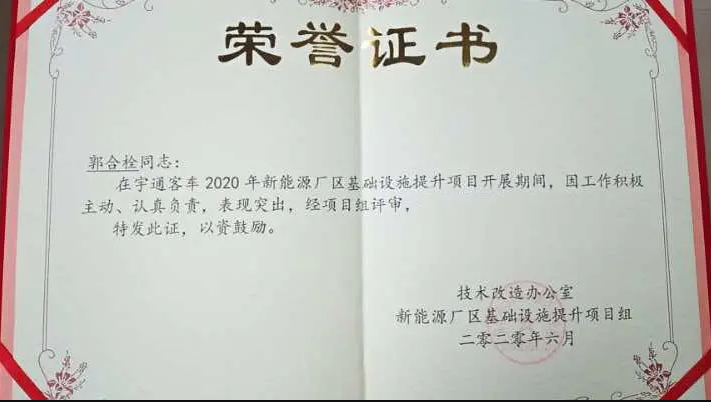 荣誉证书
郭合栓同志：
在宇通客车 2020 年新能源厂区基础设施提升项目开展期间，国工作积极
主动、认真负责，表现突出，经项目组评审，
特发此证，以资鼓励。
技术改造办公室
新能源厂区基础设施提升项目组
二零二零年六月